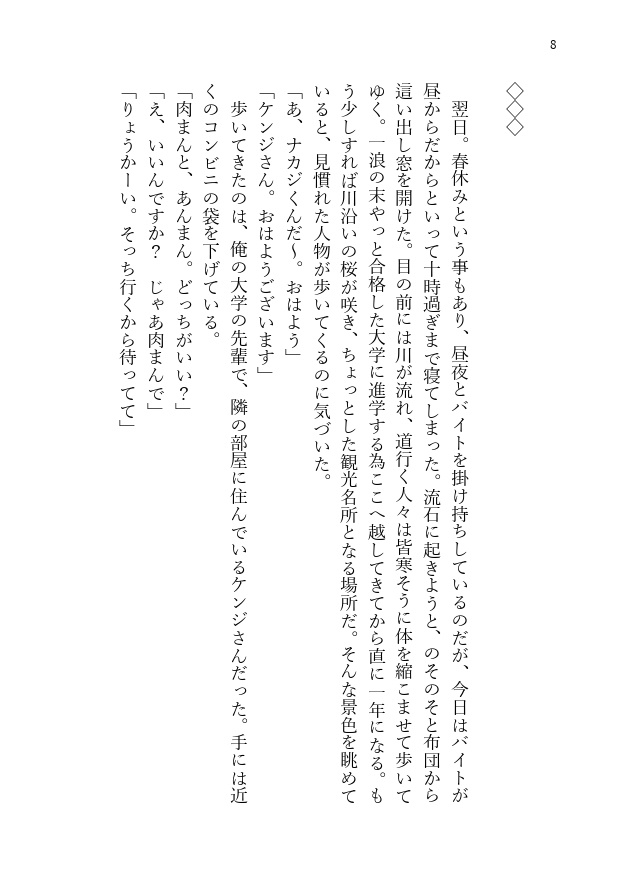 8
◇◇◇
　翌日。春休みという事もあり、昼夜とバイトを掛け持ちしているのだが、今日はバイトが
昼からだからといって十時過ぎまで寝てしまった。流石に起きようと、のそのそと布団から
這い出し窓を開けた。目の前には川が流れ、道行く人々は皆寒そうに体を縮こませて歩いて
ゆく。一浪の末やっと合格した大学に進学する為ここへ越してきてから直に一年になる。も
う少しすれば川沿いの桜が咲き、ちょっとした観光名所となる場所だ。そんな景色を眺めて
いると、見慣れた人物が歩いてくるのに気づいた。
「あ、ナカジくんだ～。おはよう」
「ケンジさん。おはようございます」
　歩いてきたのは、俺の大学の先輩で、隣の部屋に住んでいるケンジさんだった。手には近
くのコンビニの袋を下げている。
「肉まんと、あんまん。どっちがいい？」
「え、いいんですか？　じゃあ肉まんで」
「りょうかーい。そっち行くから待ってて」